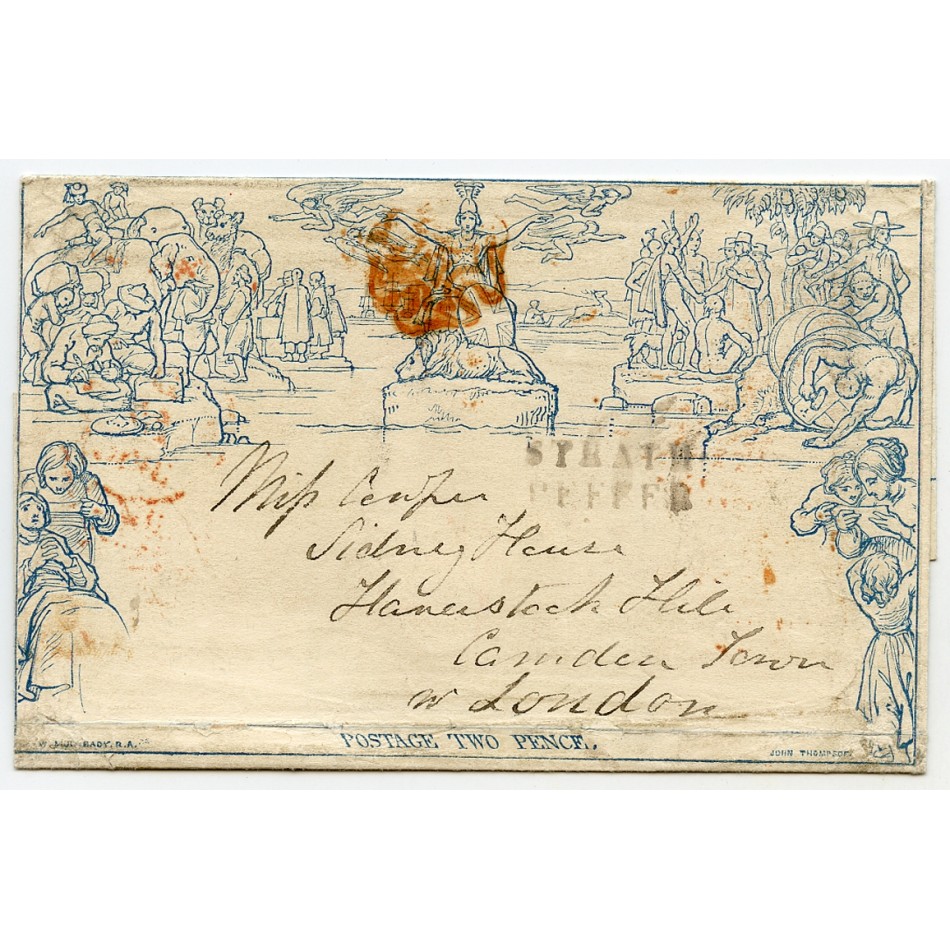 STRATH
PEFFER
Miss Cowper
Sidney House
Haverstock Hill
Camden Town
nr London
POSTAGE TWO PENCE.
W. MULREADY. R.A.
JOHN THOMPSON